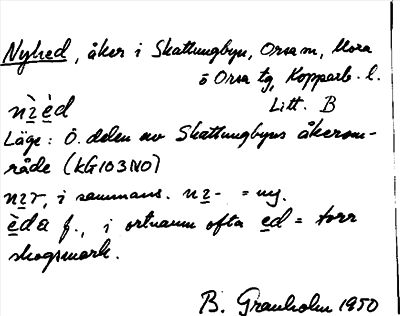 Nyhed, åker i Skattungbyn, Orsa sn, Mora
o Orsa tg, Kopparb. l.
nı̀zèd Litt. B
Läge: Ö. delen av Skattungbyns åkerom-
råde (KG103NO)
nzr, i sammans. nz- = ny.
èda f., i ortnamn ofta ed = torr
skogsmark.
B. Granholm 1950